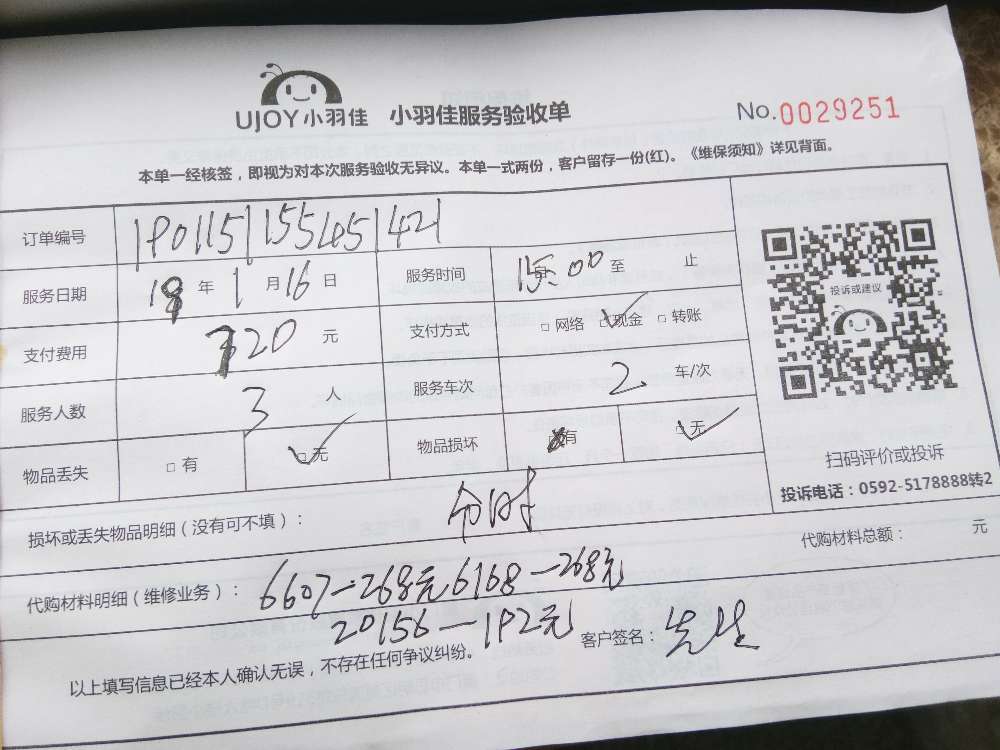 UJOY小羽佳 小羽佳服务验收单 No.0029251
本单一经核签，即视为对本次服务验收无异议。本单一式两份，客户留存一份(红)。《维保须知》详见背面。
订单编号 190115155451421
服务日期 19年1月16日 服务时间 15:00至 止
支付费用 720元 支付方式 □网络 □现金 □转账
服务人数 3人 服务车次 2车/次
物品丢失 □有 □无 物品损坏 □有 □无
投诉或建议
扫码评价或投诉
投诉电话：0592-5178888转2
损坏或丢失物品明细（没有可不填）：
代购材料总额： 元
代购材料明细（维修业务）： 6607—268元 6168—268元
20156—192元
客户签名：先生
以上填写信息已经本人确认无误，不存在任何争议纠纷。